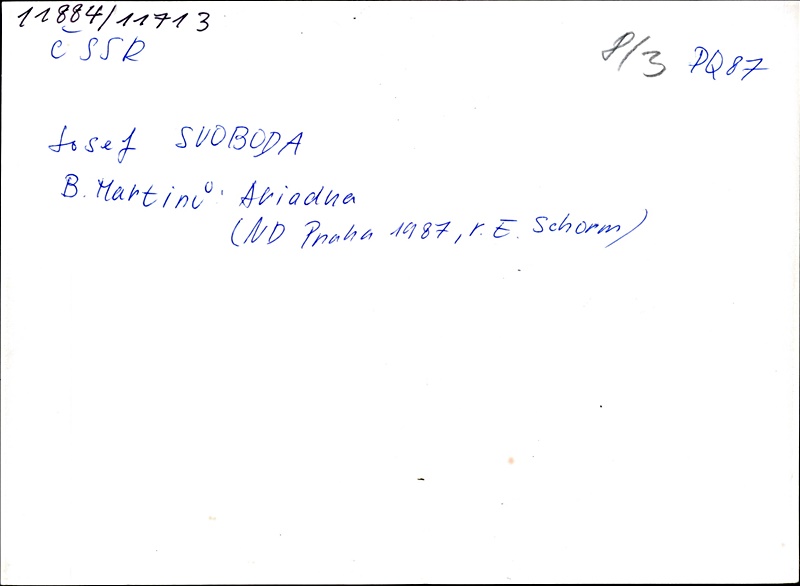 11884/11713
ČSSR
8/3 PQ87
Josef SVOBODA
B. Martinů: Ariadna
(ND Praha 1987, r. E. Schorm)